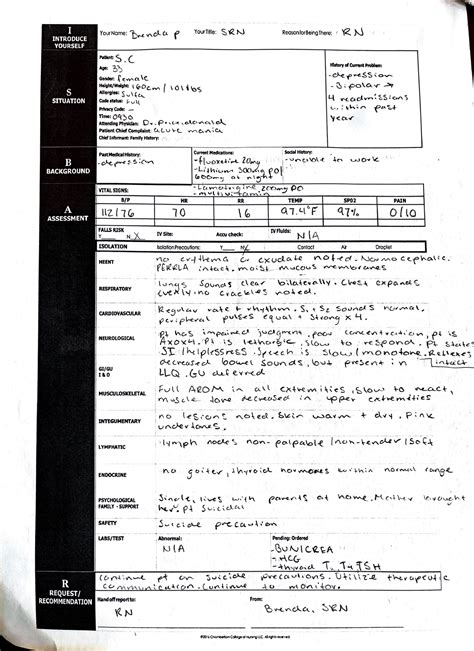 I
INTRODUCE YOURSELF
Your Name: Brenda P Your Title: SRN Reason for Being There: RN
S
SITUATION
Patient: S.C
Age: 33
Gender: female
Height/Weight: 160cm / 101lbs
Allergies: Sulfa
Code status: Full
Privacy Code: -
Time: 0930
Attending Physician: Dr. Price, donald
Patient Chief Complaint: acute mania
Chief Informant: Family History:
History of Current Problem:
-depression
-Bipolar →
4 readmissions
within past
year
B
BACKGROUND
Past Medical History:
-depression
Current Medications:
-fluoxetine 20mg
-Lithium 300mg PO
600mg at night
-Lamotrigine 200mg PO
-multivitamin
Social History:
-unable to work
A
ASSESSMENT
VITAL SIGNS:
B/P HR RR TEMP SPO2 PAIN
112/76 70 16 97.4°F 97% 0/10
FALLS RISK
Y N X
IV Site: Accu check: IV Fluids: N/A
ISOLATION Isolation Precautions: Y N Contact Air Droplet
HEENT no erythema or exudate noted. Normocephalic.
PERRLA intact. moist mucous membranes
RESPIRATORY lungs sounds clear bilaterally. Chest expands
evenly. no crackles noted.
CARDIOVASCULAR Regular rate + rhythm. S1 + S2 sounds normal.
peripheral pulses equal + strong x 4.
NEUROLOGICAL Pt has impaired judgment, poor concentration, pt is
AxOx4. Pt is lethargic, slow to respond. Pt states
SI / helplessness. Speech is slow/monotone. Reflexes
intact
GI/GU
I & O
decreased bowel sounds, but present in
LLQ. GU deferred
MUSCULOSKELETAL Full AROM in all extremities, slow to react,
muscle tone decreased in upper extremities
INTEGUMENTARY no lesions noted. Skin warm + dry. Pink
undertones.
LYMPHATIC lymph nodes non-palpable / non-tender / soft
ENDOCRINE no goiter, thyroid hormones within normal range
PSYCHOLOGICAL
FAMILY - SUPPORT
Single, lives with parents at home. Mother brought
her. pt suicidal
SAFETY Suicide precaution
LABS/TEST Abnormal:
N/A
Pending: Ordered
-BUN/CREA
-HCG
-thyroid T3 T4 TSH
R
REQUEST/
RECOMMENDATION
Continue pt on suicide precautions. Utilize therapeutic
communication. Continue to monitor.
Hand off report to: RN From: Brenda, SRN
©2016 Chamberlain College of Nursing LLC. All rights reserved.